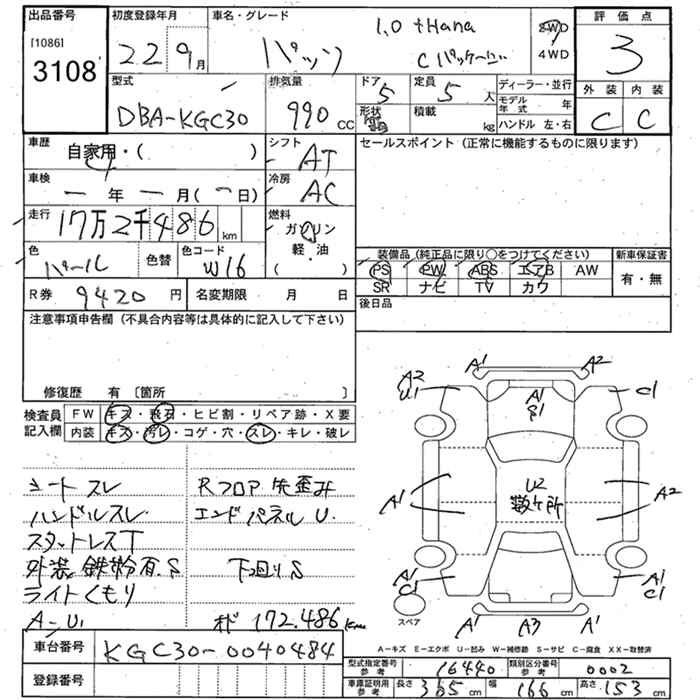 出品番号 初度登録年月 車名・グレード 評価点
[1086] 3108 22 9月 パッソ 1.0 +Hana Cパッケージ 2WD 4WD 3
型式 排気量 ドア 5 定員 5人 ディーラー・並行 外装 内装
DBA-KGC30 990 CC 形状 積載 kg モデル年式 年 ハンドル 左・右 C C
車歴 自家用・( ) シフト AT セールスポイント (正常に機能するものに限ります)
車検 ー年 ー月(ー日) 冷房 AC
走行 17万2千486 km 燃料 ガソリン・軽・油 ( )
色 パール 色替 色コード W16 装備品 (純正品に限り○をつけてください) 新車保証書
PS PW ABS エアB AW 有・無
SR ナビ TV カワ
R券 9420 円 名変期限 月 日 後日品
注意事項申告欄 (不具合内容等は具体的に記入して下さい)
修復歴 有 〔箇所 〕
検査員記入欄 FW キズ・飛石・ヒビ割・リペア跡・X要
内装 キズ・汚レ・コゲ・穴・スレ・キレ・破レ
A1 A2
A2 U1 A1 S1 C1
シートスレ Rフロア先歪み
ハンドルスレ エンドパネルU.
スタットレスT
外装鉄粉有.S 下廻りS
ライトくもり
A-U1 オド172,486km
A1 U2 数ヶ所 A2
A1 C1 A1 C1
スペア A1 A3 A1
A-キズ E-エクボ U-凹み W-補修跡 S-サビ C-腐食 XX-取替済
車台番号 KGC30-0040484
登録番号
型式指定番号 参考 16440 類別区分番号 参考 0002
車庫証明用 参考 長さ 365 cm 幅 166 cm 高さ 153 cm